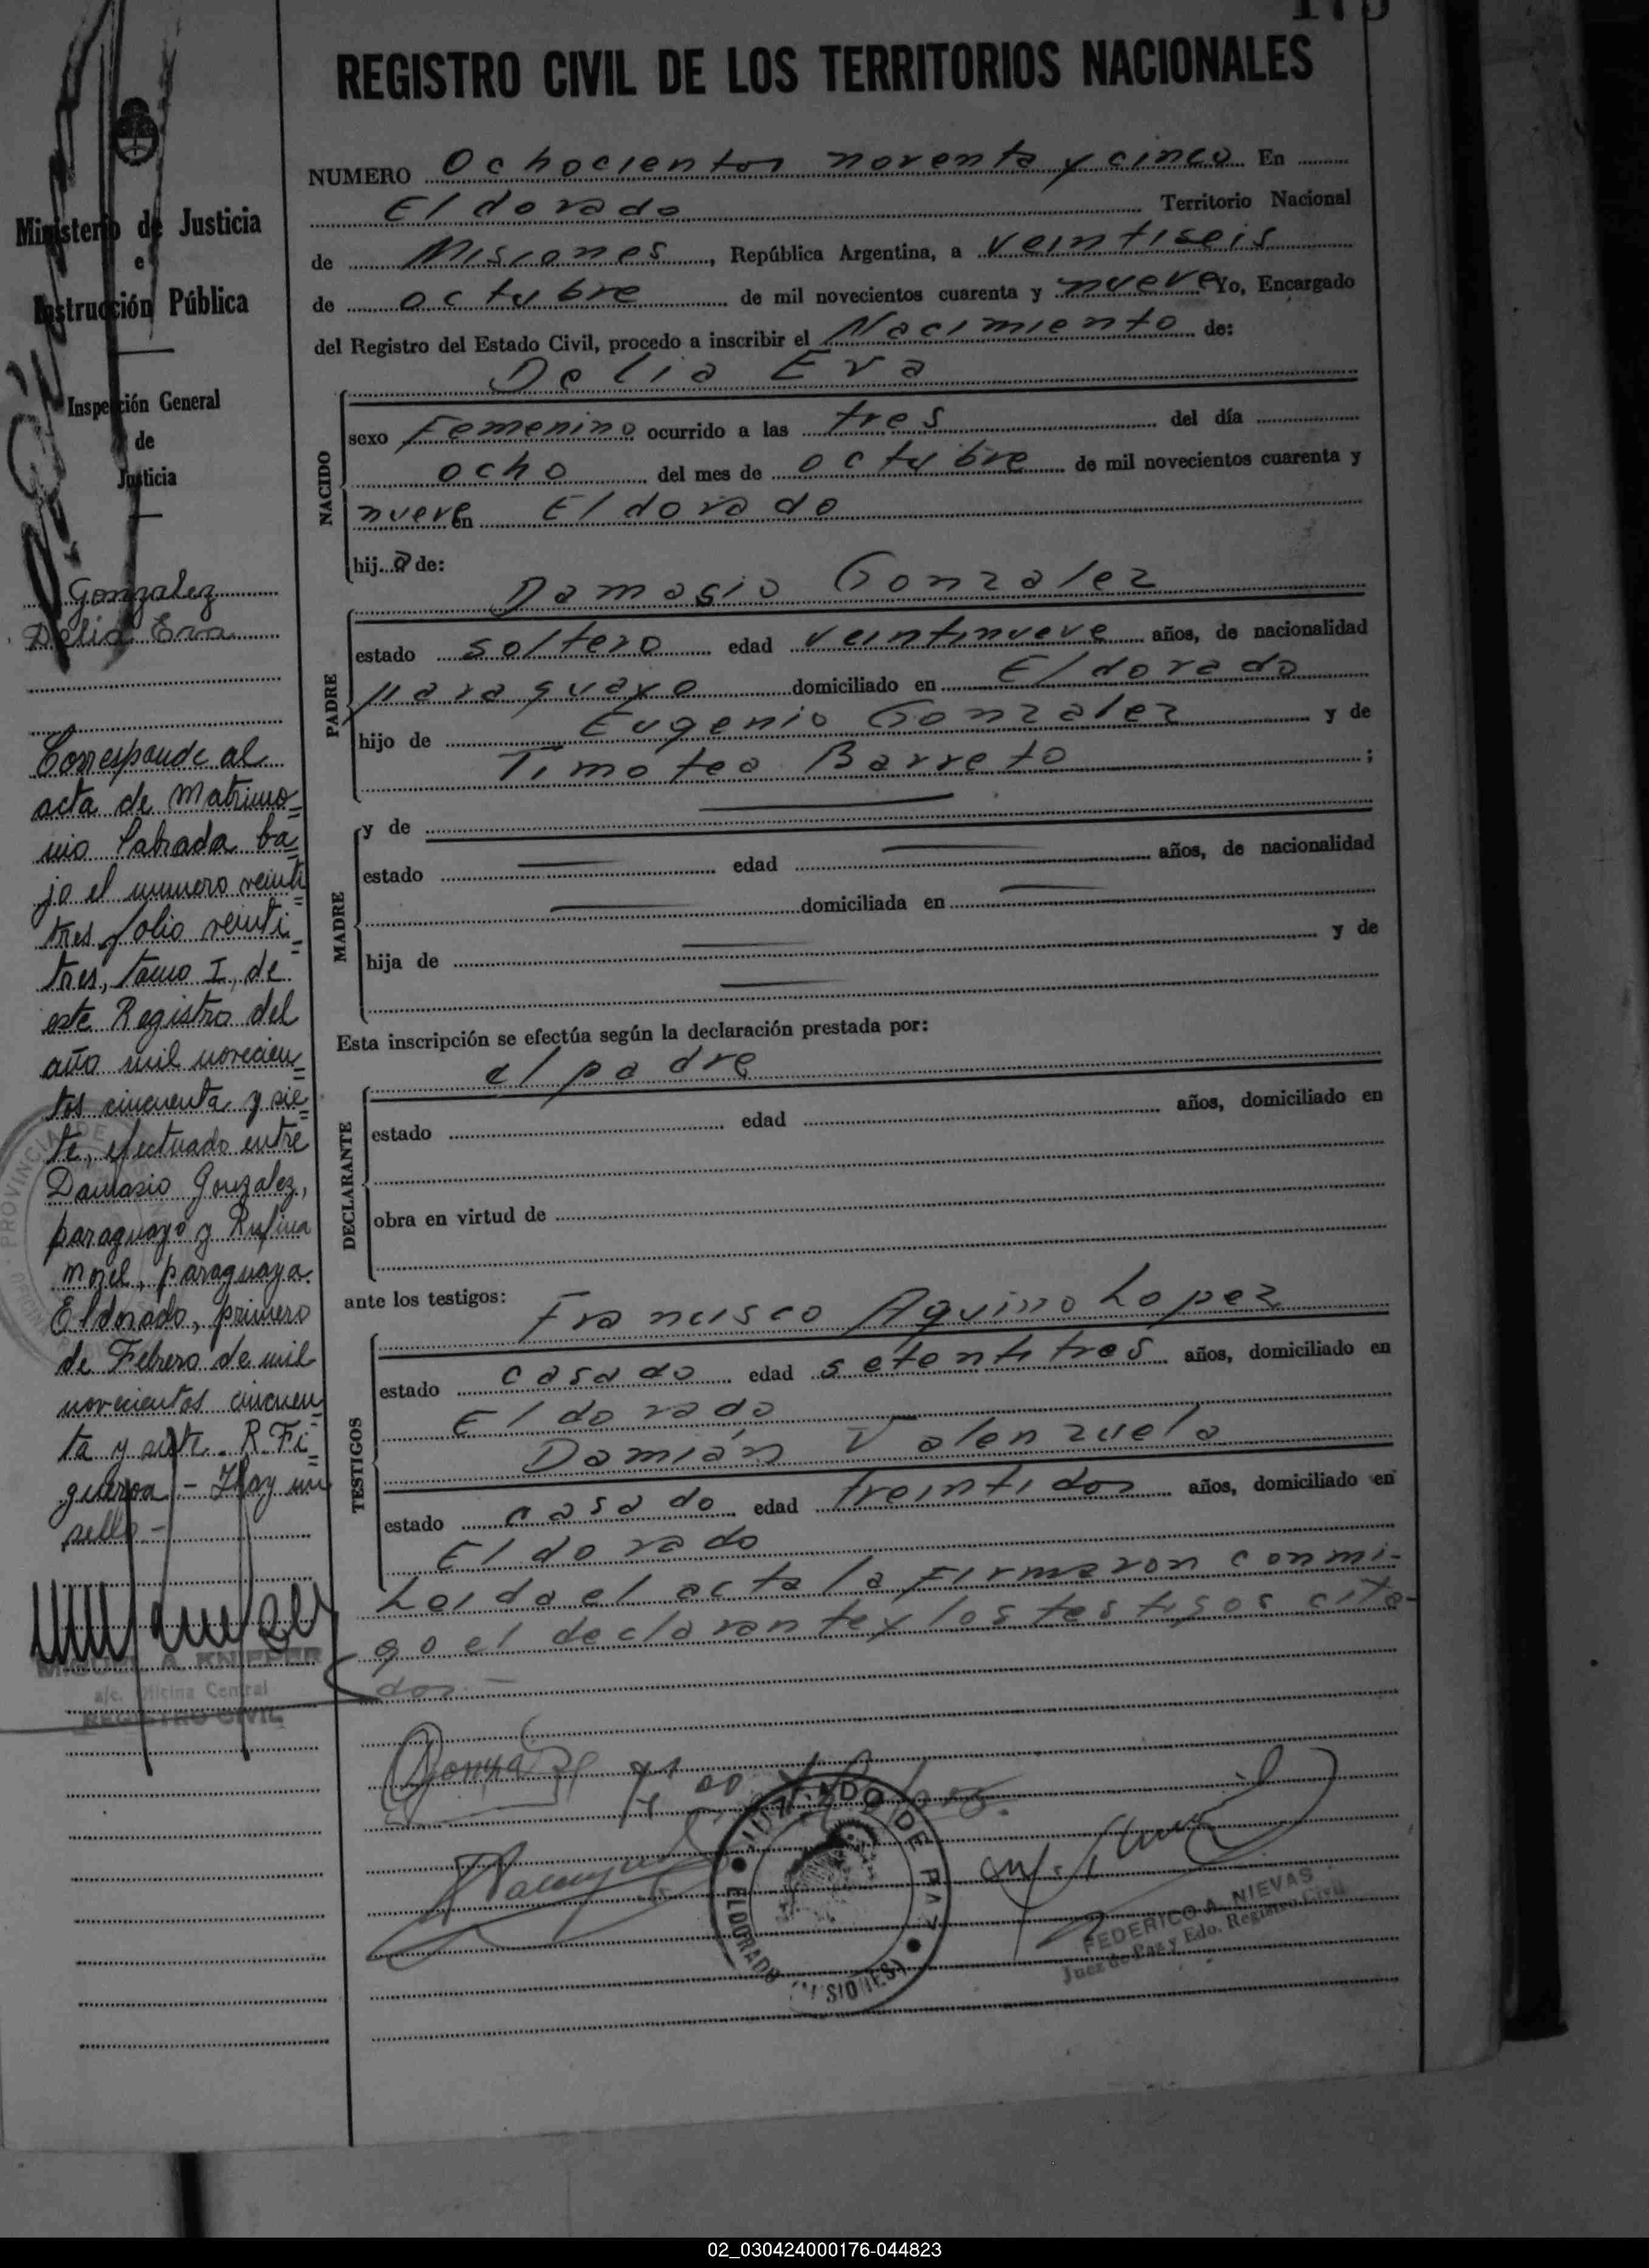 REGISTRO CIVIL DE LOS TERRITORIOS NACIONALES
Ministerio de Justicia
e
Instrucción Pública
Inspección General
de
Justicia
Gonzalez
Delia Eva
Corresponde al
acta de Matrimo=
nio labrada ba=
jo el numero veinti=
tres, folio veinti=
tres, tomo I, de
este Registro del
año mil novecien=
tos cincuenta y sie=
te, efectuado entre
Damasio Gonzalez,
paraguayo y Rufina
Morel, paraguaya.
Eldorado, primero
de Febrero de mil
novecientos cincuen=
ta y siete. R. Fi=
gueroa - Hay un
sello.-
MIGUEL A. KNIPPER
a/c. Oficina Central
REGISTRO CIVIL
NUMERO Ochocientos noventa y cinco En
Eldorado Territorio Nacional
de Misiones, República Argentina, a veintiseis
de octubre de mil novecientos cuarenta y nueve Yo, Encargado
del Registro del Estado Civil, procedo a inscribir el Nacimiento de:
Delia Eva
NACIDO
sexo Femenino ocurrido a las tres del día
ocho del mes de octubre de mil novecientos cuarenta y
nueve en Eldorado
hij a de:
Damasio Gonzalez
PADRE
estado soltero edad veintinueve años, de nacionalidad
paraguayo domiciliado en Eldorado
hijo de Eugenio Gonzalez y de
Timotea Barreto ;
MADRE
y de
estado edad años, de nacionalidad
domiciliada en
hija de y de
Esta inscripción se efectúa según la declaración prestada por:
el padre
DECLARANTE
estado edad años, domiciliado en
obra en virtud de
ante los testigos:
Francisco Aquino Lopez
TESTIGOS
estado casado edad setentitres años, domiciliado en
Eldorado
Damián Valenzuela
estado casado edad treintidos años, domiciliado en
Eldorado
Leida el acta la Firmaron conmi-
go el declarante y los testigos cita-
dos.-
JUZGADO DE PAZ
ELDORADO (MISIONES)
FEDERICO A. NIEVAS
Juez de Paz y Edo. Registro Civil
02_030424000176-044823